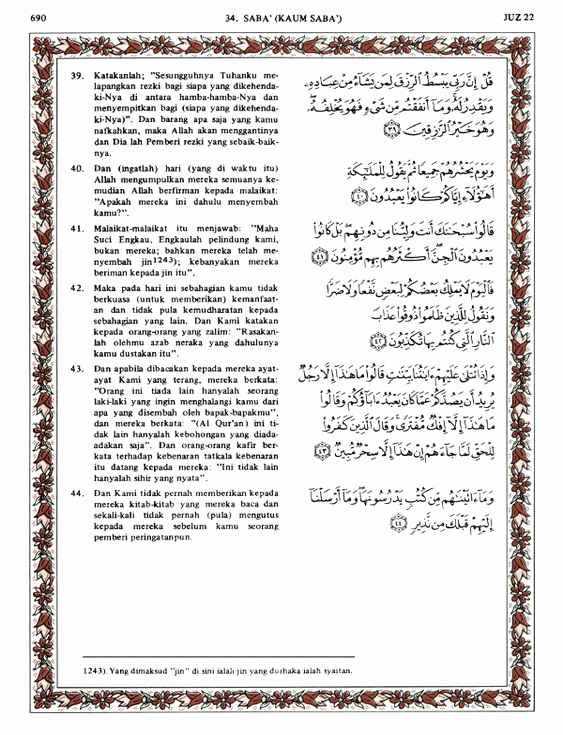 690
34. SABA' (KAUM SABA')
JUZ 22
39. Katakanlah; "Sesungguhnya Tuhanku me-
lapangkan rezki bagi siapa yang dikehenda-
ki-Nya di antara hamba-hamba-Nya dan
menyempitkan bagi (siapa yang dikehenda-
ki-Nya)". Dan barang apa saja yang kamu
nafkahkan, maka Allah akan menggantinya
dan Dia lah Pemberi rezki yang sebaik-baik-
nya.
40. Dan (ingatlah) hari (yang di waktu itu)
Allah mengumpulkan mereka semuanya ke-
mudian Allah berfirman kepada malaikat:
"Apakah mereka ini dahulu menyembah
kamu?".
41. Malaikat-malaikat itu menjawab: "Maha
Suci Engkau. Engkaulah pelindung kami,
bukan mereka; bahkan mereka telah me-
nyembah jin1243); kebanyakan mereka
beriman kepada jin itu".
42. Maka pada hari ini sebahagian kamu tidak
berkuasa (untuk memberikan) kemanfaat-
an dan tidak pula kemudharatan kepada
sebahagian yang lain. Dan Kami katakan
kepada orang-orang yang zalim: "Rasakan-
lah olehmu azab neraka yang dahulunya
kamu dustakan itu".
43. Dan apabila dibacakan kepada mereka ayat-
ayat Kami yang terang, mereka berkata:
"Orang ini tiada lain hanyalah seorang
laki-laki yang ingin menghalangi kamu dari
apa yang disembah oleh bapak-bapakmu",
dan mereka berkata: "(Al Qur'an) ini ti-
dak lain hanyalah kebohongan yang diada-
adakan saja". Dan orang-orang kafir ber-
kata terhadap kebenaran tatkala kebenaran
itu datang kepada mereka: "Ini tidak lain
hanyalah sihir yang nyata".
44. Dan Kami tidak pernah memberikan kepada
mereka kitab-kitab yang mereka baca dan
sekali-kali tidak pernah (pula) mengutus
kepada mereka sebelum kamu seorang
pemberi peringatanpun.
قُلْ إِنَّ رَبِّي يَبْسُطُ الرِّزْقَ لِمَن يَشَاءُ مِنْ عِبَادِهِ
وَيَقْدِرُ لَهُ وَمَا أَنفَقْتُم مِّن شَيْءٍ فَهُوَ يُخْلِفُهُ
وَهُوَ خَيْرُ الرَّازِقِينَ ٣٩
وَيَوْمَ يَحْشُرُهُمْ جَمِيعًا ثُمَّ يَقُولُ لِلْمَلَائِكَةِ
أَهَٰؤُلَاءِ إِيَّاكُمْ كَانُوا يَعْبُدُونَ ٤٠
قَالُوا سُبْحَانَكَ أَنتَ وَلِيُّنَا مِن دُونِهِم بَلْ كَانُوا
يَعْبُدُونَ الْجِنَّ أَكْثَرُهُم بِهِم مُّؤْمِنُونَ ٤١
فَالْيَوْمَ لَا يَمْلِكُ بَعْضُكُمْ لِبَعْضٍ نَّفْعًا وَلَا ضَرًّا
وَنَقُولُ لِلَّذِينَ ظَلَمُوا ذُوقُوا عَذَابَ
النَّارِ الَّتِي كُنتُم بِهَا تُكَذِّبُونَ ٤٢
وَإِذَا تُتْلَىٰ عَلَيْهِمْ آيَاتُنَا بَيِّنَاتٍ قَالُوا مَا هَٰذَا إِلَّا رَجُلٌ
يُرِيدُ أَن يَصُدَّكُمْ عَمَّا كَانَ يَعْبُدُ آبَاؤُكُمْ وَقَالُوا
مَا هَٰذَا إِلَّا إِفْكٌ مُّفْتَرًى وَقَالَ الَّذِينَ كَفَرُوا
لِلْحَقِّ لَمَّا جَاءَهُمْ إِنْ هَٰذَا إِلَّا سِحْرٌ مُّبِينٌ ٤٣
وَمَا آتَيْنَاهُم مِّن كُتُبٍ يَدْرُسُونَهَا وَمَا أَرْسَلْنَا
إِلَيْهِمْ قَبْلَكَ مِن نَّذِيرٍ ٤٤
1243). Yang dimaksud "jin" di sini ialah jin yang durhaka ialah syaitan.